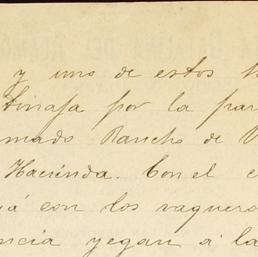 y uno de estos
tinaja por la par
mado Rancho de V
Hacienda. Con el c
já con los vaquero
ncia yegan á la